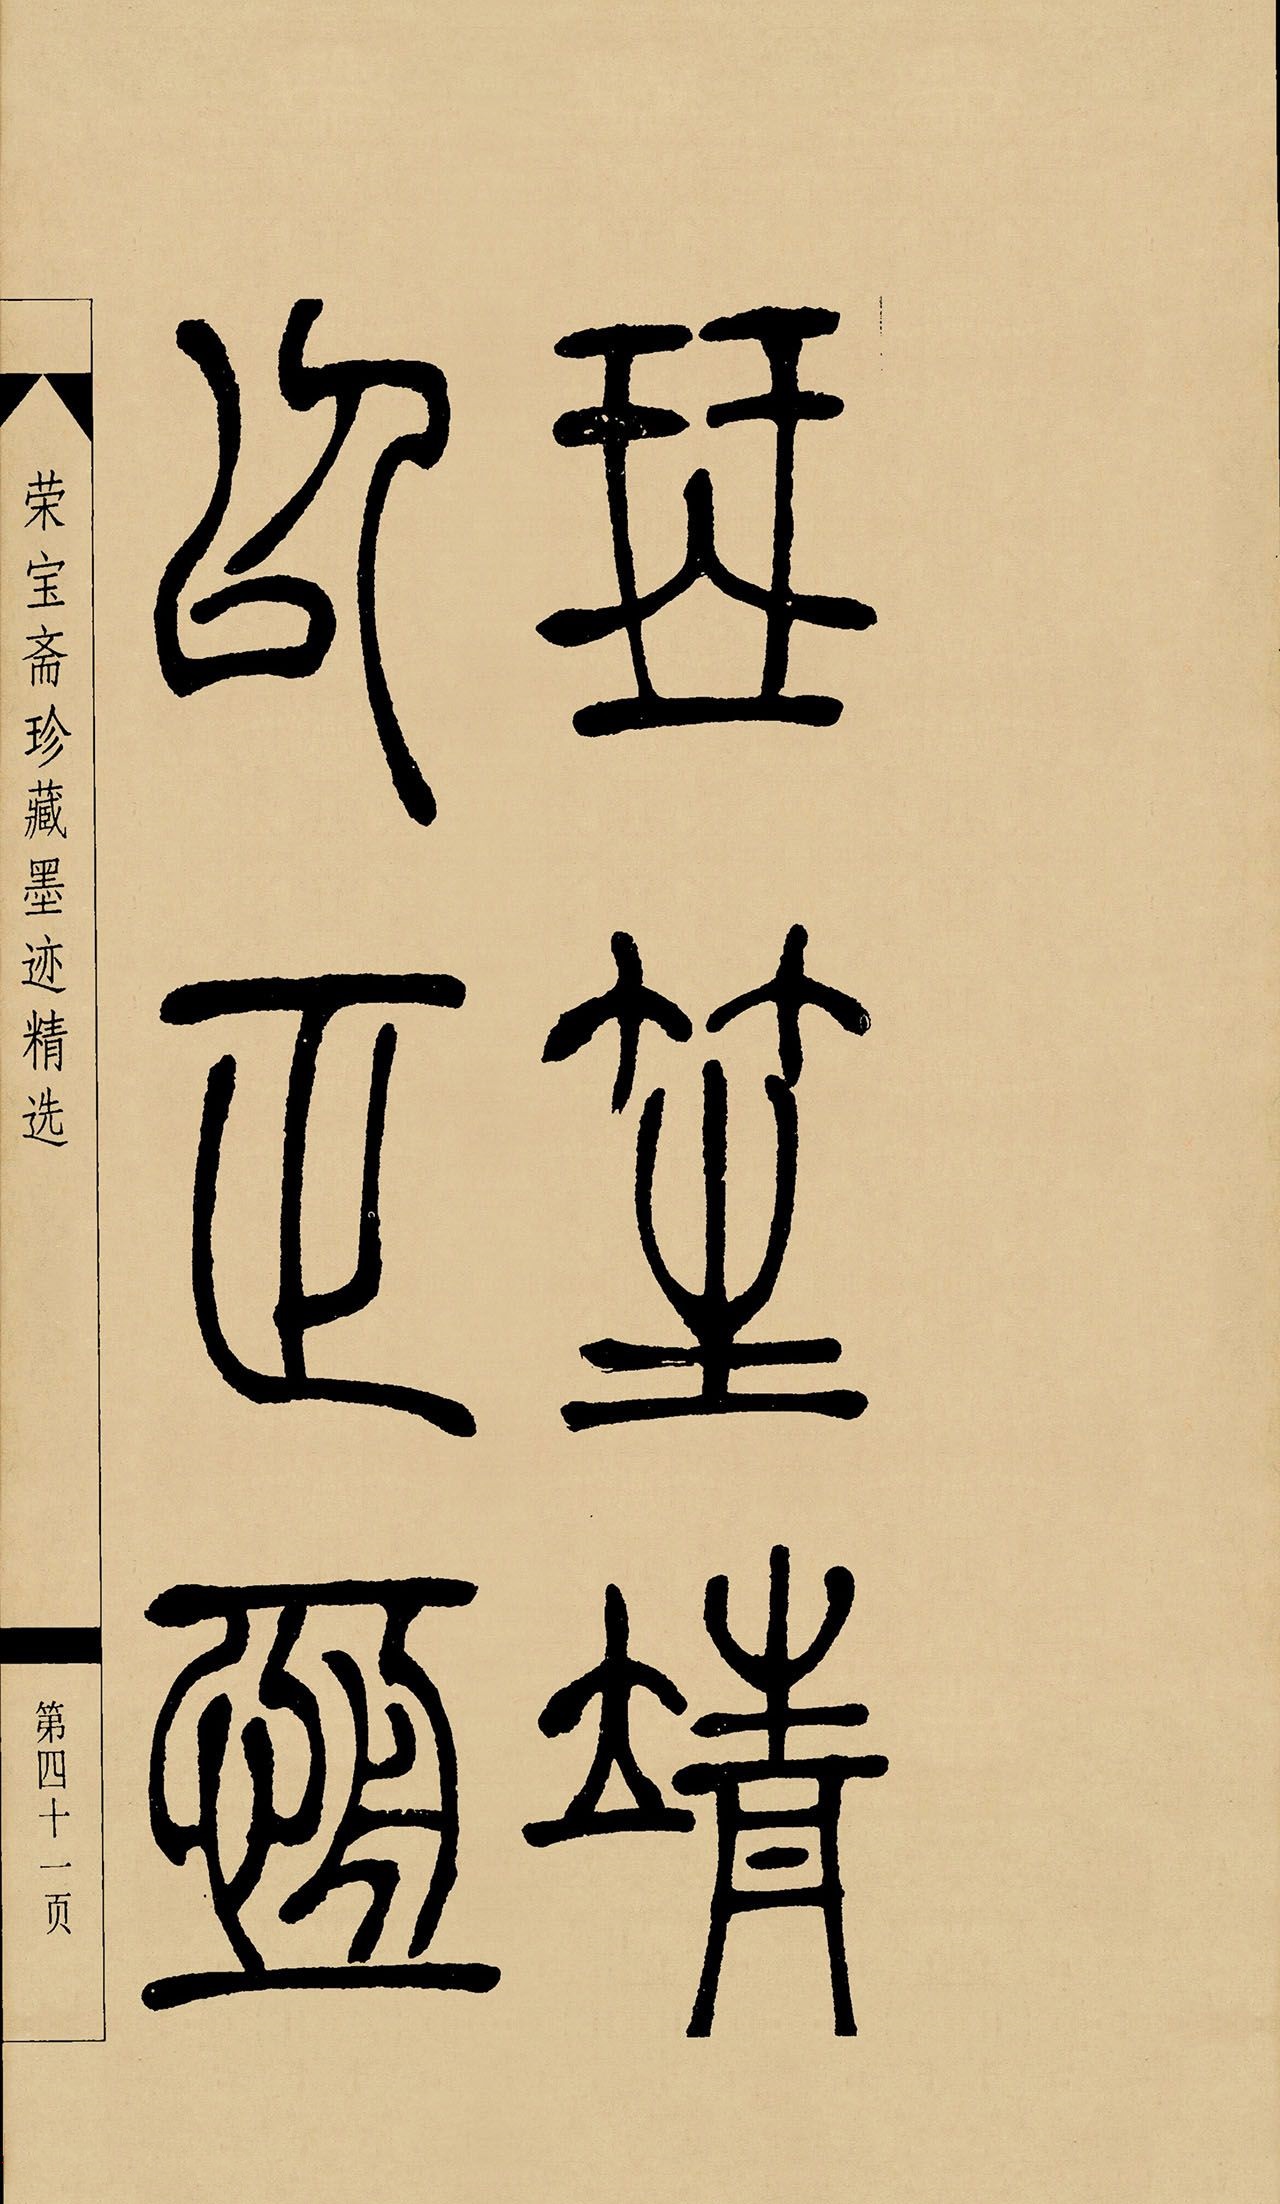 琴笙靖
以正恆
荣宝斋珍藏墨迹精选
第四十一页